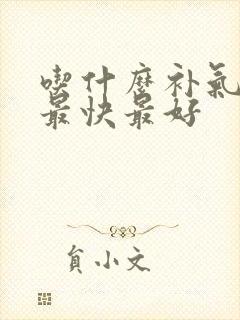 喫什麼补氣
最快最好
貟小文